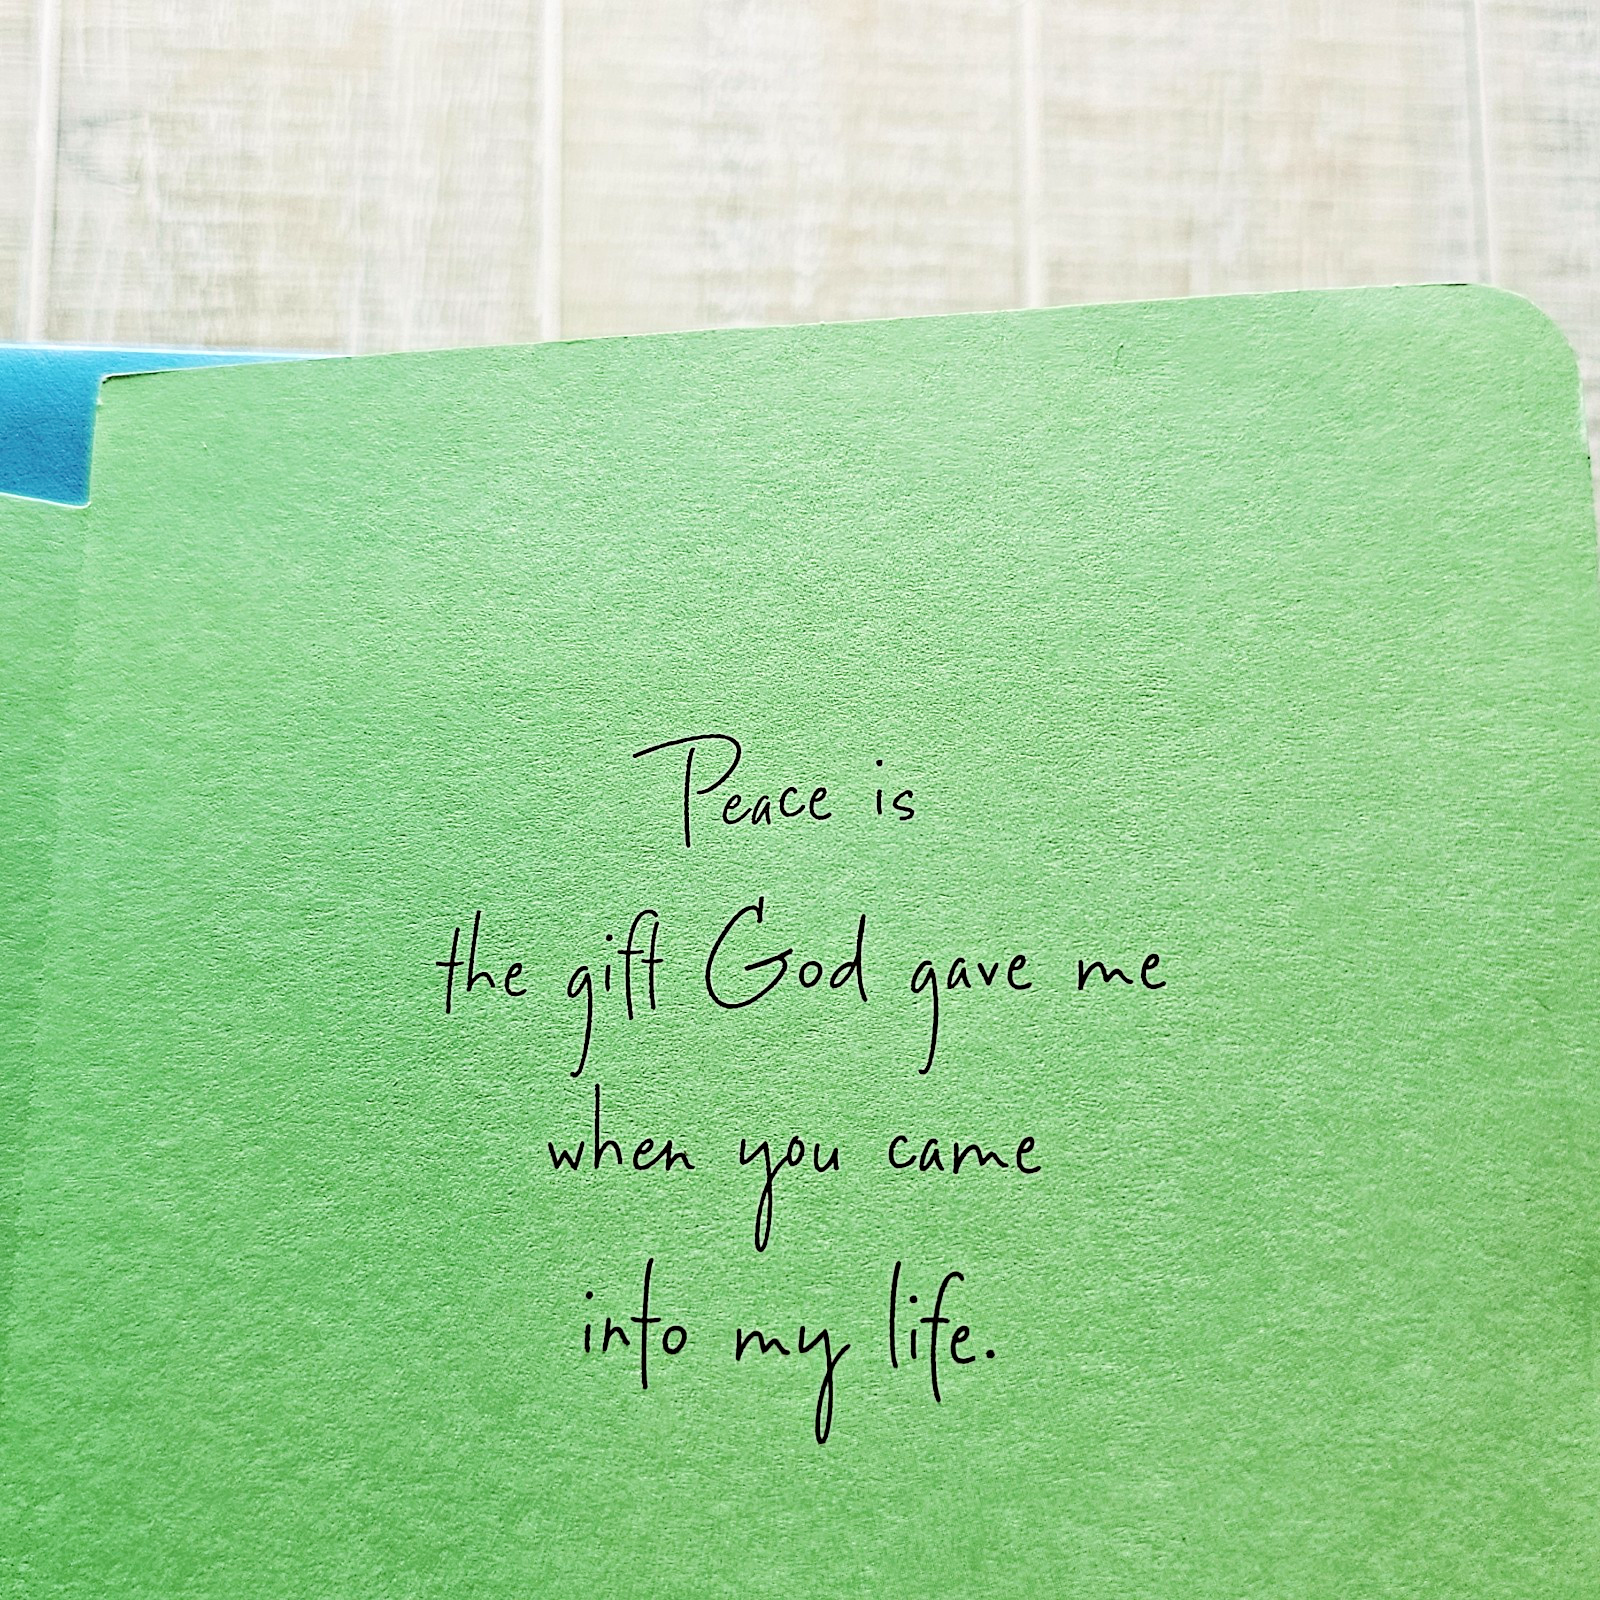 Peace is
the gift God gave me
when you came
into my life.